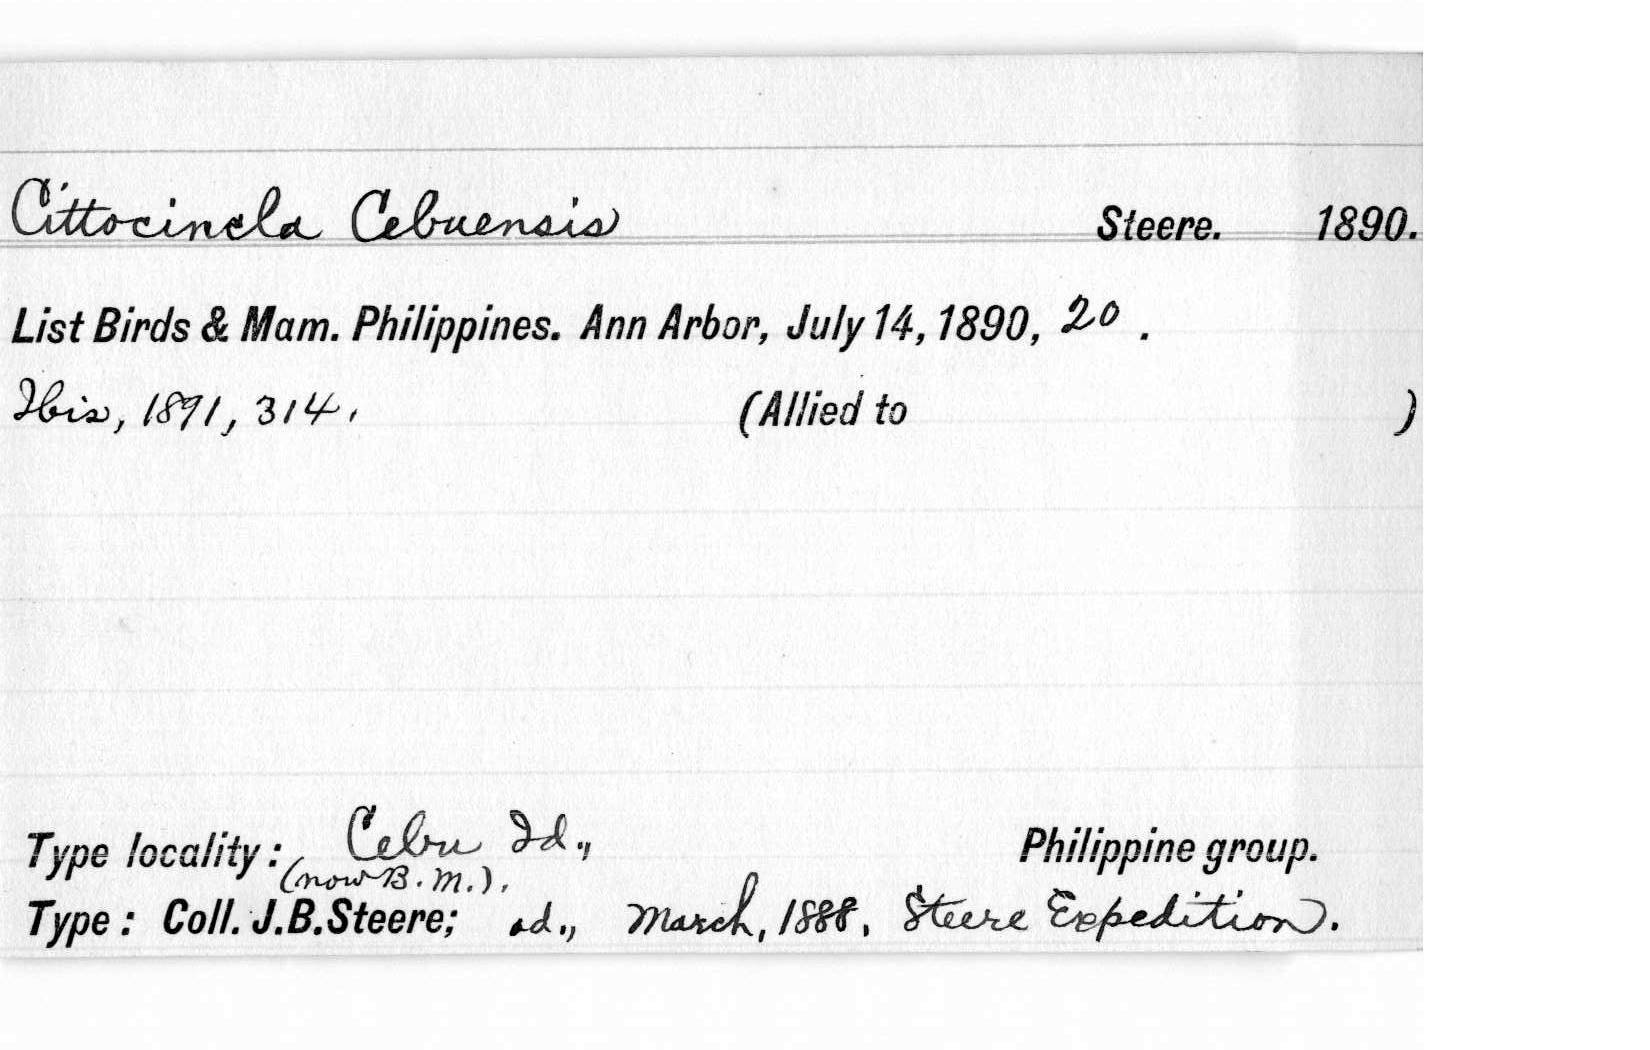 Cittocincla Cebuensis Steere. 1890.
List Birds & Mam. Philippines. Ann Arbor, July 14, 1890, 20 .
Ibis, 1891, 314. (Allied to )
Type locality: Cebu Id., Philippine group.
(now B.M.).
Type: Coll. J.B.Steere; ad., March, 1888, Steere Expedition.